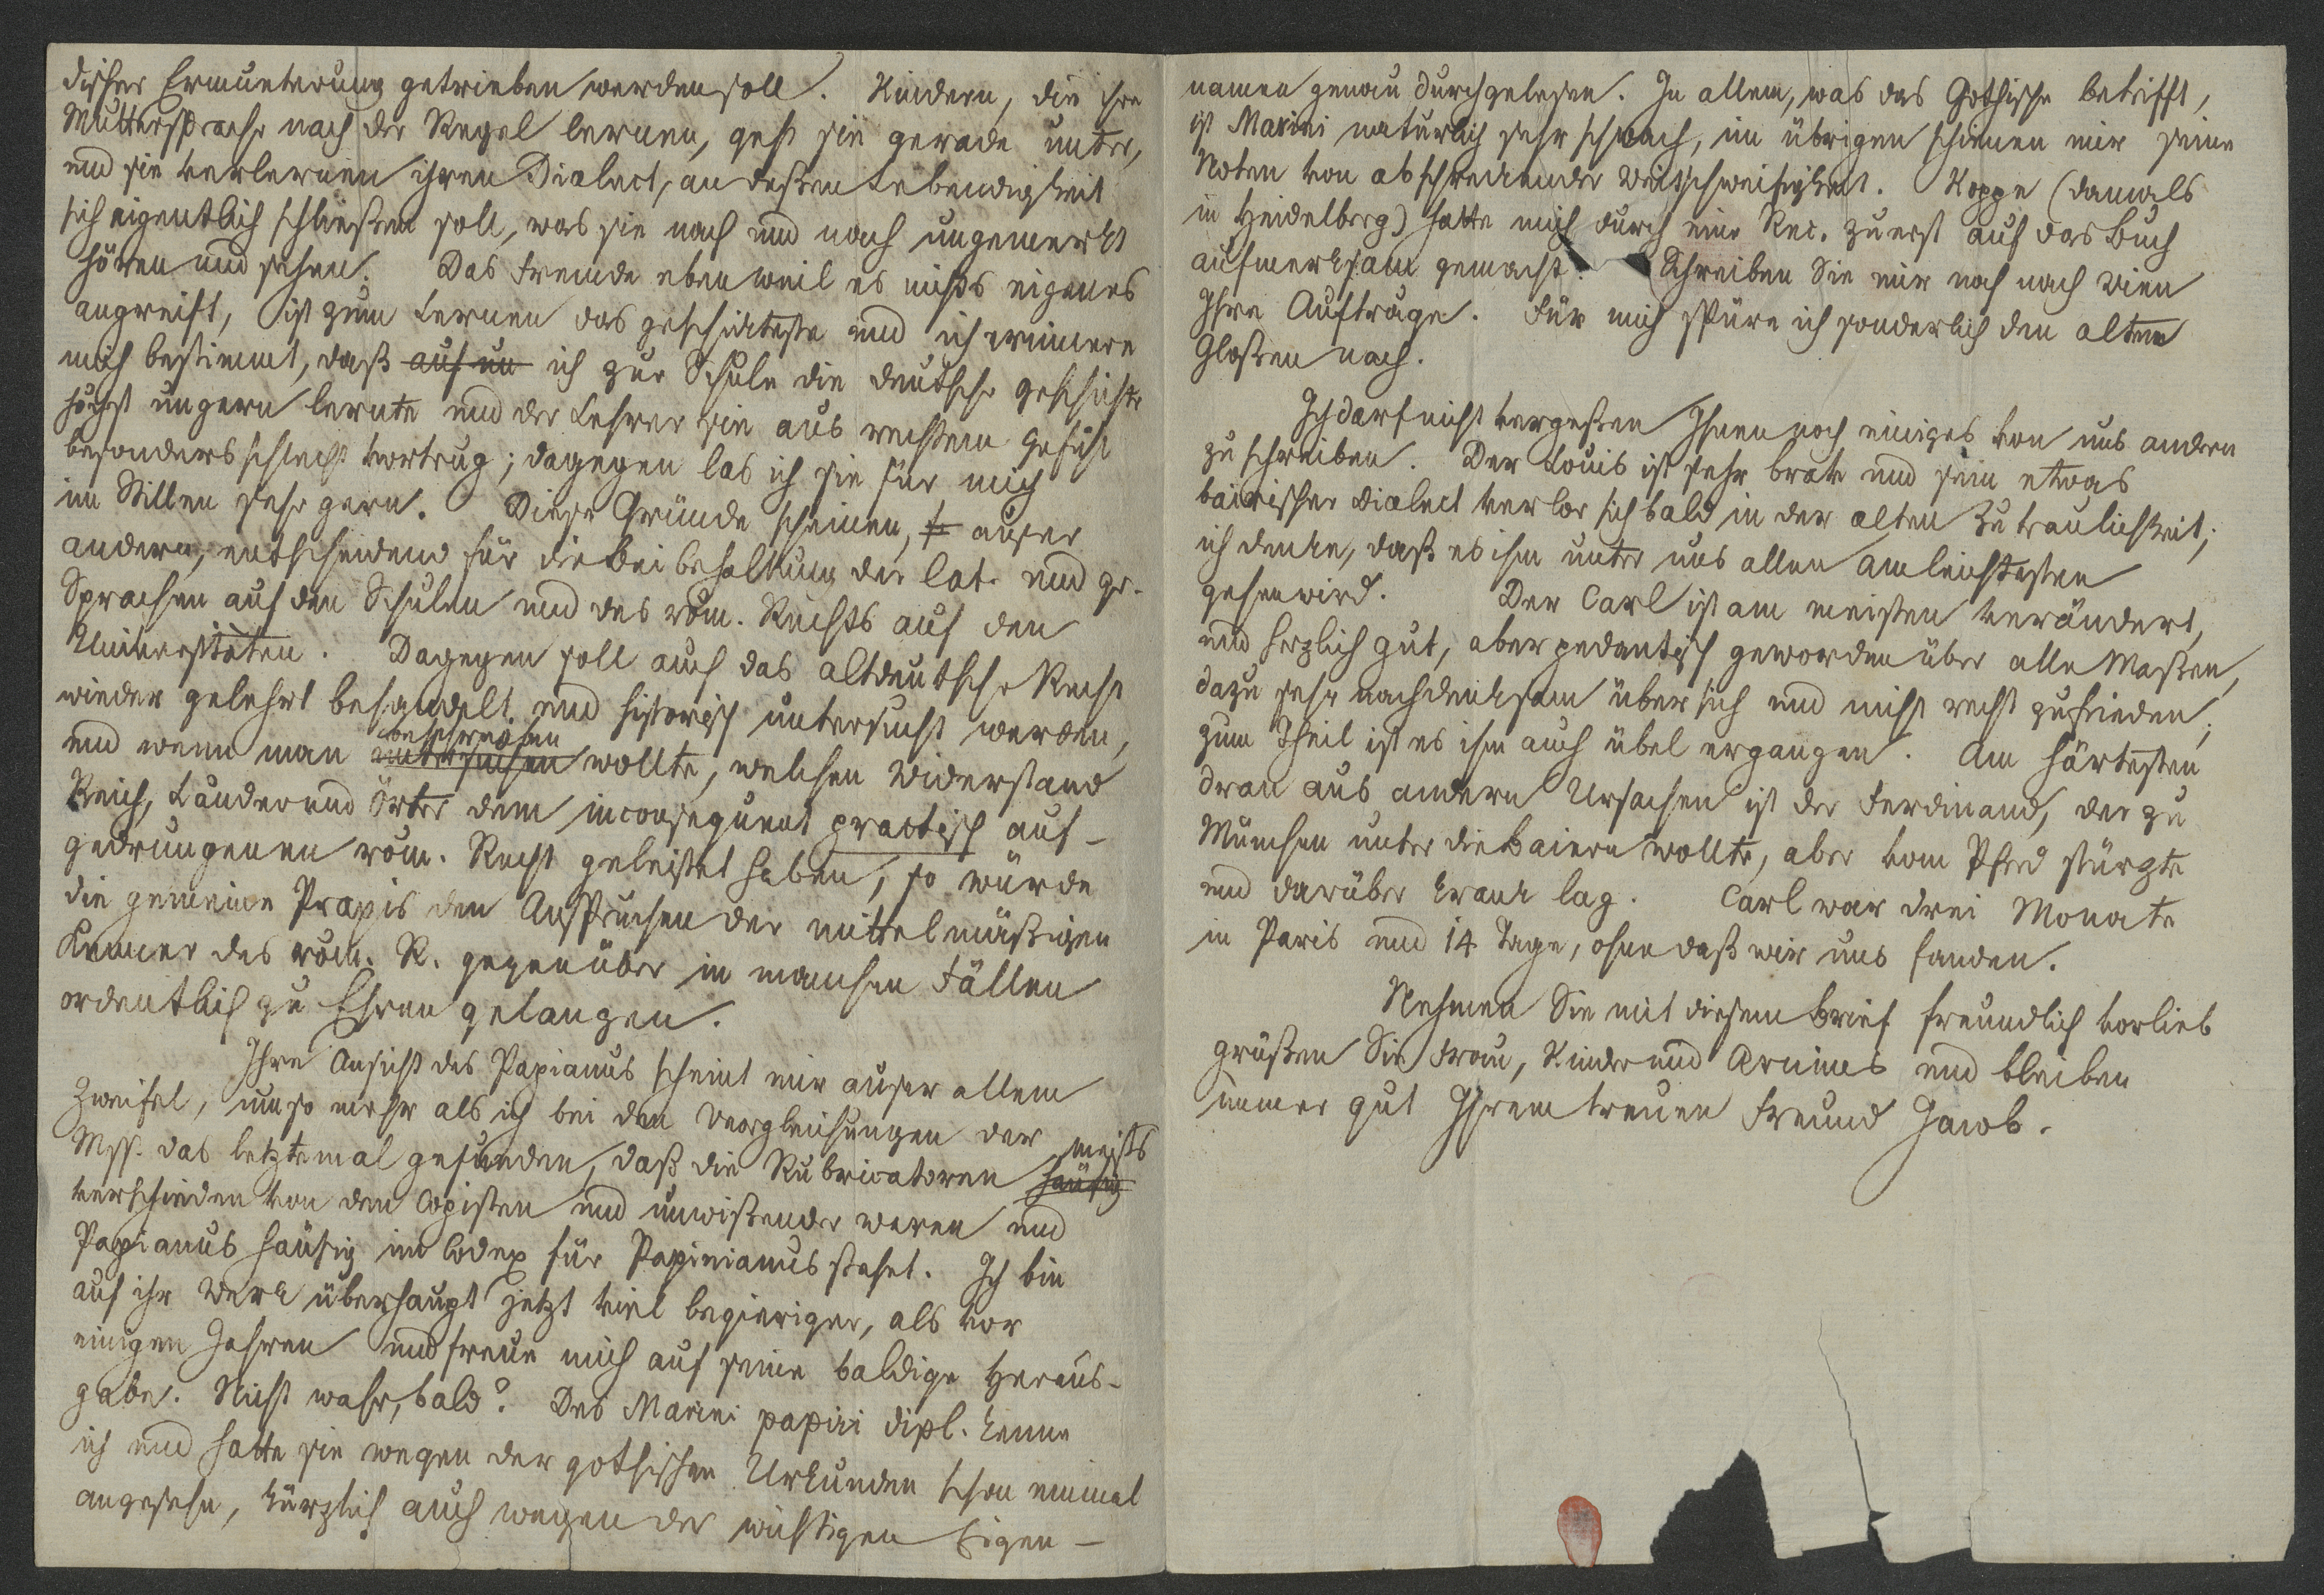 discher Ermunterung getrieben werden soll. Kindern, die ihre
Muttersprache nach der Regel lernen, geht sie gerade unter,
und sie verlernen ihren Dialect, an deßen Lebendigkeit
sich eigentlich schließen soll, was sie nach und nach ungemerkt
hören und sehen. Das Fremde eben weil es nichts eigenes
angreift, ist zum Lernen das geschickteste und ich erinnere
mich bestimmt, daß auf un ich zur Schule die deutsche Geschichte
höchst ungern lernte und der Lehrer sie aus rechtem Gefühl
besonders schlecht vortrug; dagegen las ich sie für mich
im Stillen sehr gern. Diese Gründe scheinen, auser
andern, entscheidend für die Beibehaltung der lat. und gr.
Sprachen auf den Schulen und des röm. Rechts auf den
Universitäten. Dagegen soll auch das altdeutsche Recht
wieder gelehrt behandelt und historisch untersucht werden,
beschreiben
und wenn man untersuchen wollte, welchen Widerstand
Reich, Länder und Örter dem inconsequent practisch auf-
gedrungenen röm. Recht geleistet haben, so würde
die gemeine Praxis den Ansprüchen der mittelmäßigen
Kenner des röm. R. gegenüber in manchen Fällen
ordentlich zu Ehren gelangen.
Ihre Ansicht des Papianus scheint mir auser allem
Zweifel, um so mehr als ich bei den Vergleichungen der
meists
Mss. das letztemal gefunden, daß die Rubricatoren häufig
verschieden von den Copisten und unwißender waren und
Papianus häufig im Codex für Papinianus stehet. Ich bin
auf ihr Werk überhaupt jetzt viel begieriger, als vor
einigen Jahren und freue mich auf seine baldige Heraus-
gabe. Nicht wahr, bald? Des Marini papiri dipl. kenne
ich und hatte sie wegen der gothischen Urkunden schon einmal
angesehn, kürzlich auch wegen der wichtigen Eigen-
namen genau durchgelesen. In allem, was das Gothische betrifft,
ist Marini natürlich sehr schwach, im übrigen schienen mir seine
Noten von abschreckender Weitschweifigkeit. Koppe (damals
in Heidelberg) hatte mich durch eine Rec. zuerst auf das Buch
aufmerksam gemacht. Schreiben Sie mir noch nach Wien
Ihre Aufträge. Für mich spüre ich sonderlich den alten
Gloßen nach.
Ich darf nicht vergeßen Ihnen noch einiges von uns andern
zu schreiben. Der Louis ist sehr brav und sein etwas
bairischer Dialect verlor sich bald in der alten Zutraulichkeit;
ich denke, daß es ihm unter uns allen am leichtesten
gehen wird. Der Carl ist am meisten verändert,
und herzlich gut, aber pedantisch geworden über alle Maßen,
dazu sehr nachdenksam über sich und nicht recht zufrieden;
zum Theil ist es ihm auch übel ergangen. Am härtesten
dran aus andern Ursachen ist der Ferdinand, der zu
München unter die Baiern wollte, aber vom Pferd stürzte
und darüber krank lag. Carl war drei Monate
in Paris und 14 Tage, ohne daß wir uns fanden.
Nehmen Sie mit diesem Brief freundlich vorlieb
grüßen Sie Frau, Kinder und Arnims und bleiben
immer gut Ihrem treuen Freund Jacob.